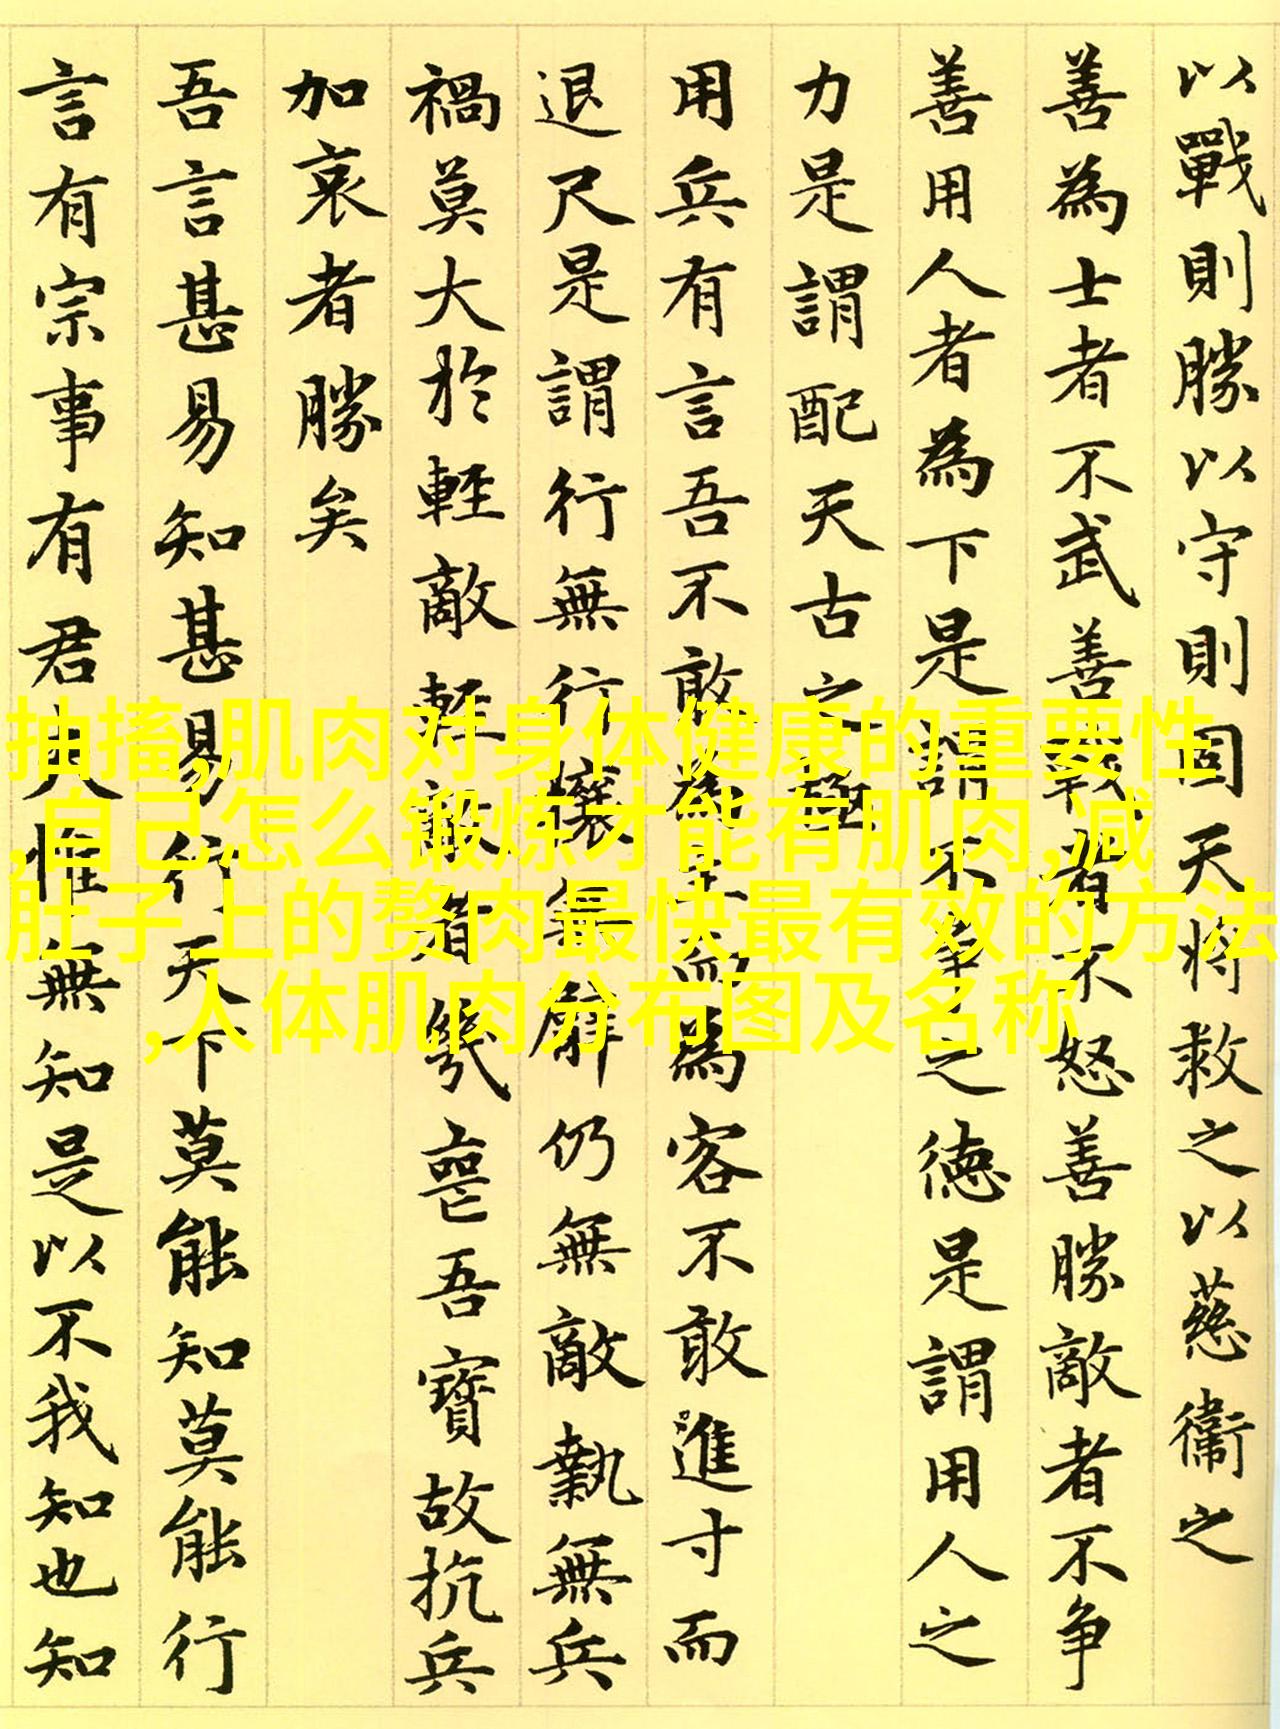 以戰則勝以守則固天將救之以慈衛之
善為士者不武善戰者不怒善勝敵者不争
善用人者為下是謂不争之德是謂用人之
力是謂配天古之極
用兵有言吾不敢為主而為客不敢進寸而
退尺是謂行無行攘無臂仍無敵執無兵
禍莫大於輕敵輕敵者幾喪吾寶故抗兵
加哀者勝矣
吾言甚易知甚易行天下莫能知莫能行
言有宗事有君夫惟無知是以不我知也知
抽搐,肌肉对身体健康的重要性
,自己怎么锻炼才能有肌肉,减
肚子上的赘肉最快最有效的方法
,人体肌肉分布图及名称